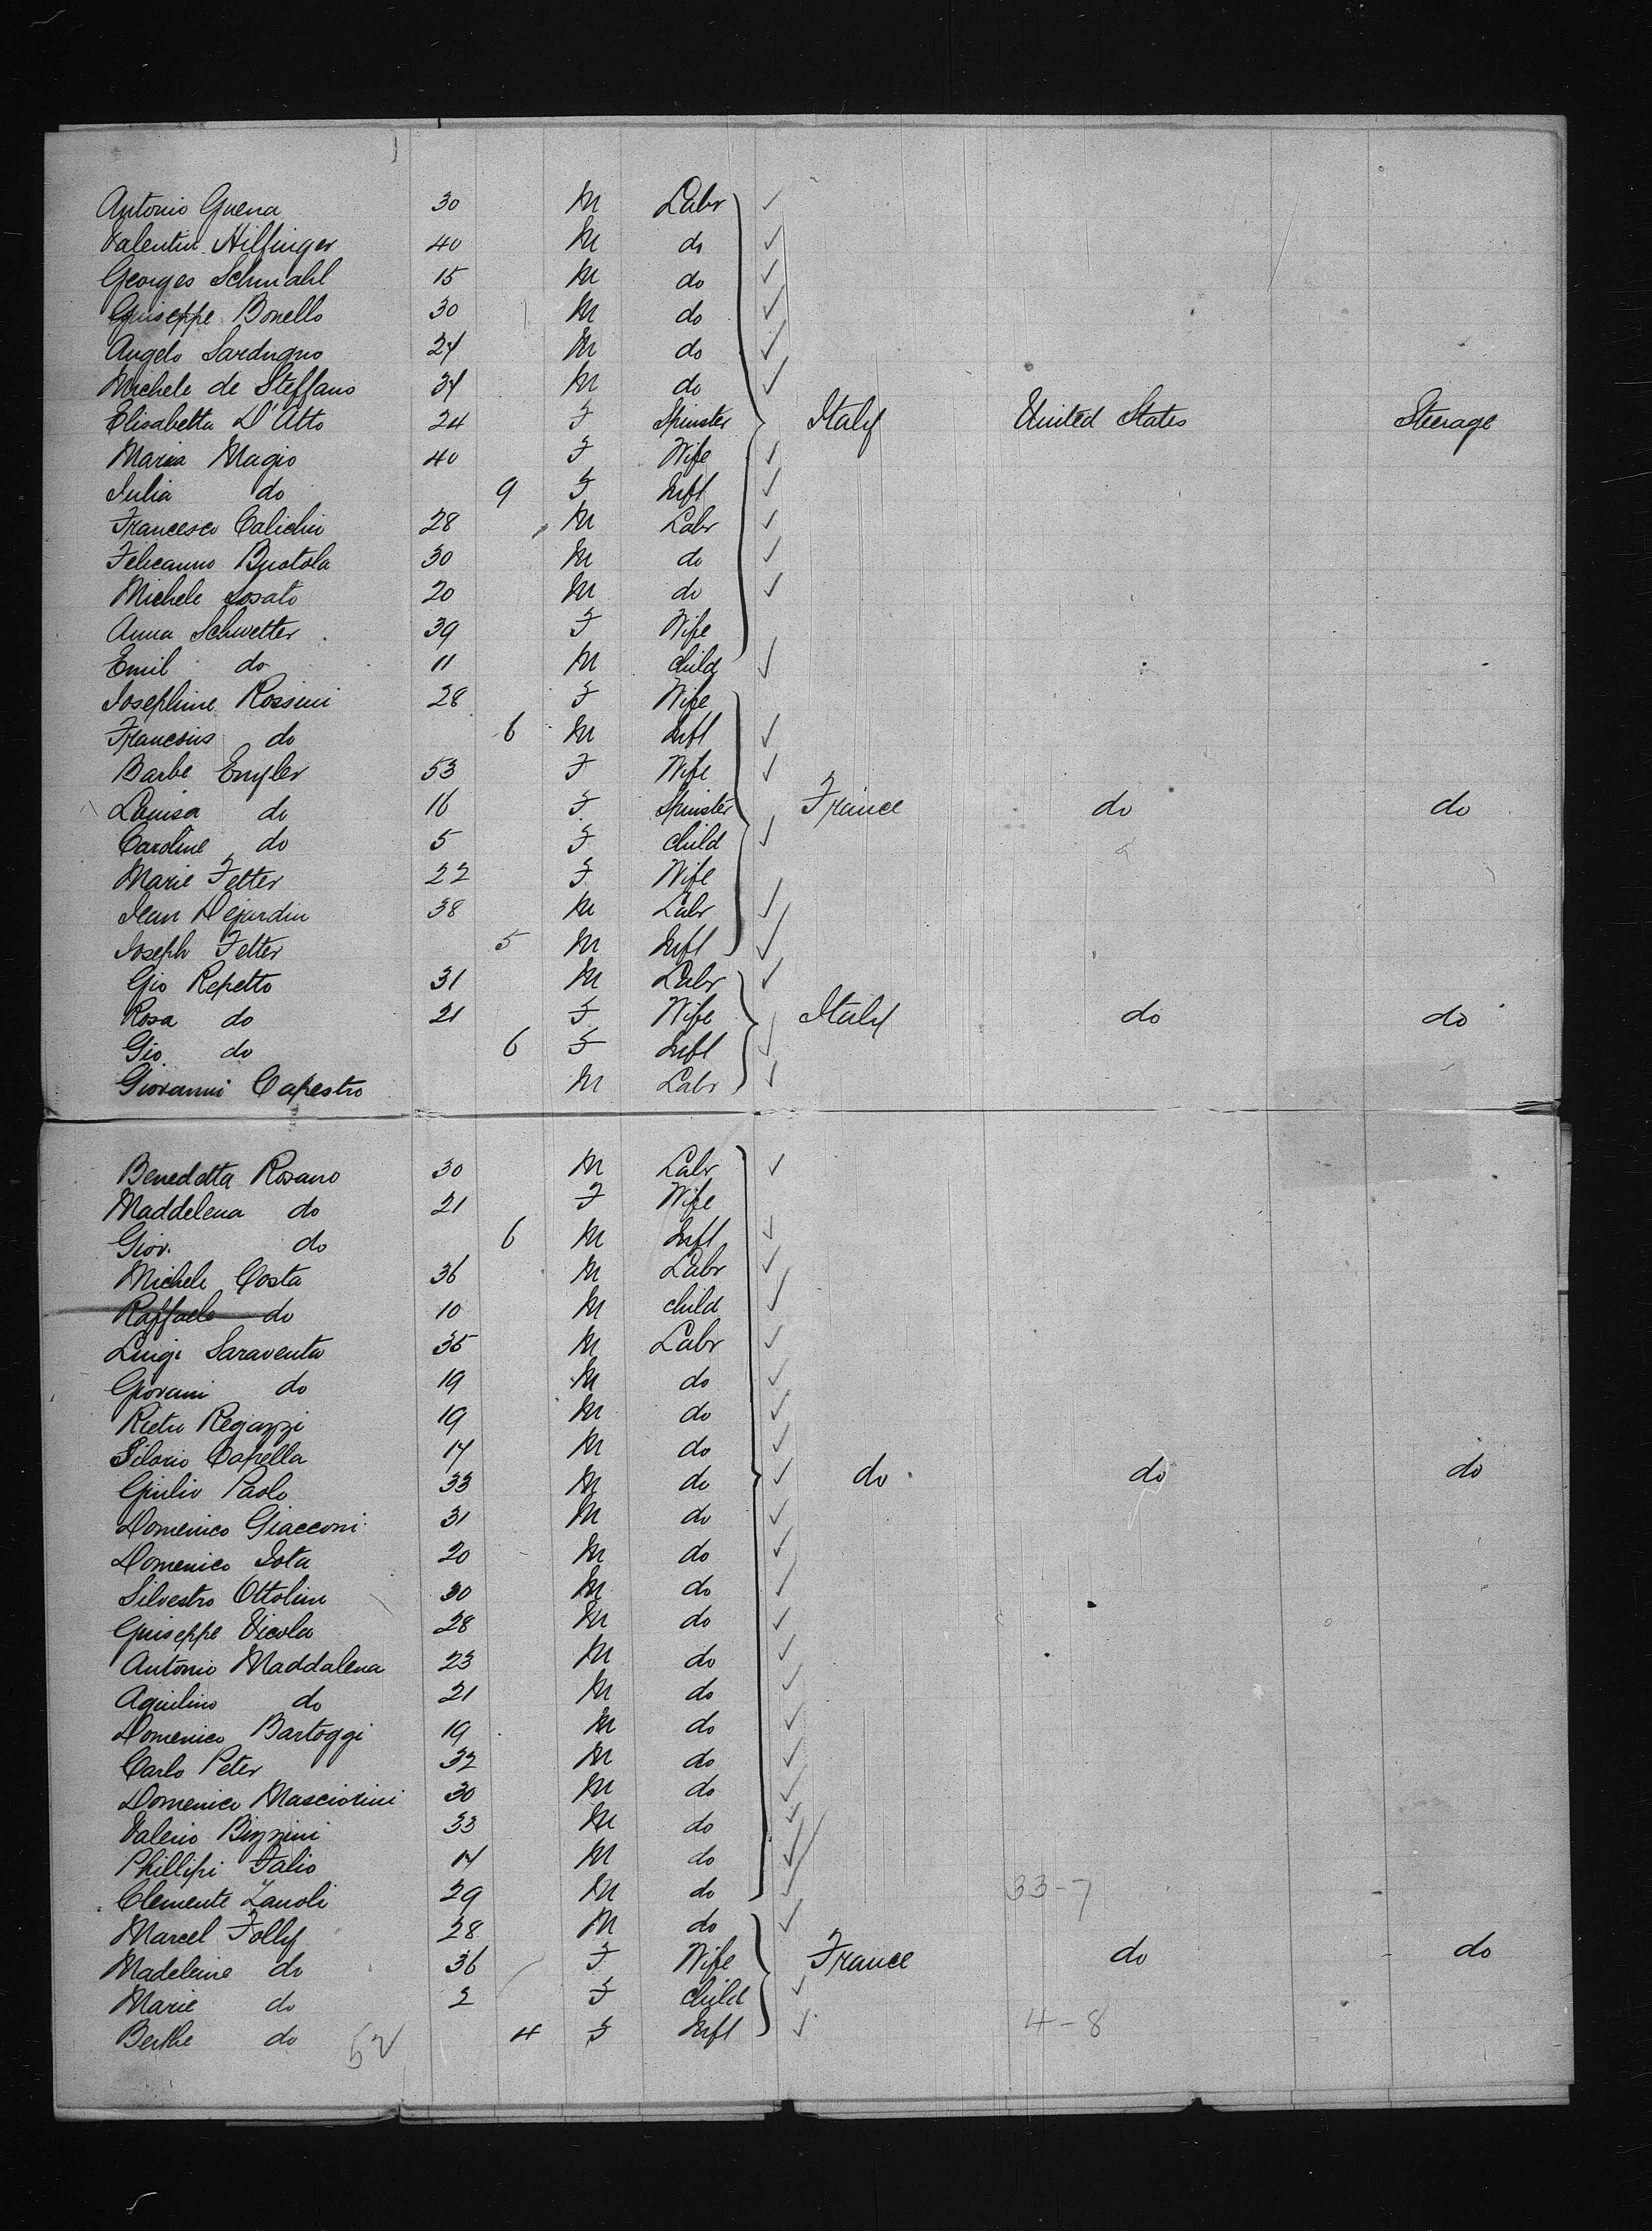 Antonio Guena 30 M Labr
Valentin Hilfinger 40 M do
Georges Schmahl 15 M do
Guiseppe Bonello 30 M do
Angelo Sardugno 24 M do
Michele de Steffano 34 M do
Elisabetta D'Atto 24 F Spinster Italy United States Steerage
Maria Magio 40 F Wife
Julia do 9 F Inft
Francesco Calichii 28 M Labr
Felicanno Bustola 30 M do
Michele Losato 20 M do
Anna Schwetter 39 F Wife
Emil do 11 M Child
Josephine Rossini 28 F Wife
Francois do 6 M Inft
Barbe Engler 53 F Wife
Louisa do 16 F Spinster France do do
Caroline do 5 F Child
Marie Fetter 22 F Wife
Jean Dejardin 38 M Labr
Joseph Fetter 5 M Inft
Gio Repetto 31 M Labr
Rosa do 21 F Wife Italy do do
Gio do 6 F Inft
Giovanni Capestro M Labr
Benedetta Rosano 30 M Labr
Maddelena do 21 F Wife
Giov. do 6 M Inft
Michele Costa 36 M Labr
Raffaele do 10 M child
Luigi Saraventa 35 M Labr
Giovani do 19 M do
Pietu Regazzi 19 M do
Silorio Capella 14 M do
Giulio Paolo 33 M do do do do
Domenico Giacconi 31 M do
Domenico Iota 20 M do
Silvestro Ottolini 30 M do
Guiseppe Vicola 28 M do
Antonio Maddalena 23 M do
Aquilino do 21 M do
Domenico Bartoggi 19 M do
Carlo Peter 32 M do
Domenico Masciorini 30 M do
Valerio Bizzini 33 M do
Phillipi Falio 14 M do
Clemente Zanoli 29 M do 33-7
Marcel Folly 28 M do
Madeleine do 36 F Wife France do do
Marie do 2 F Child
Berthe do 4 F Inft 4-8
52